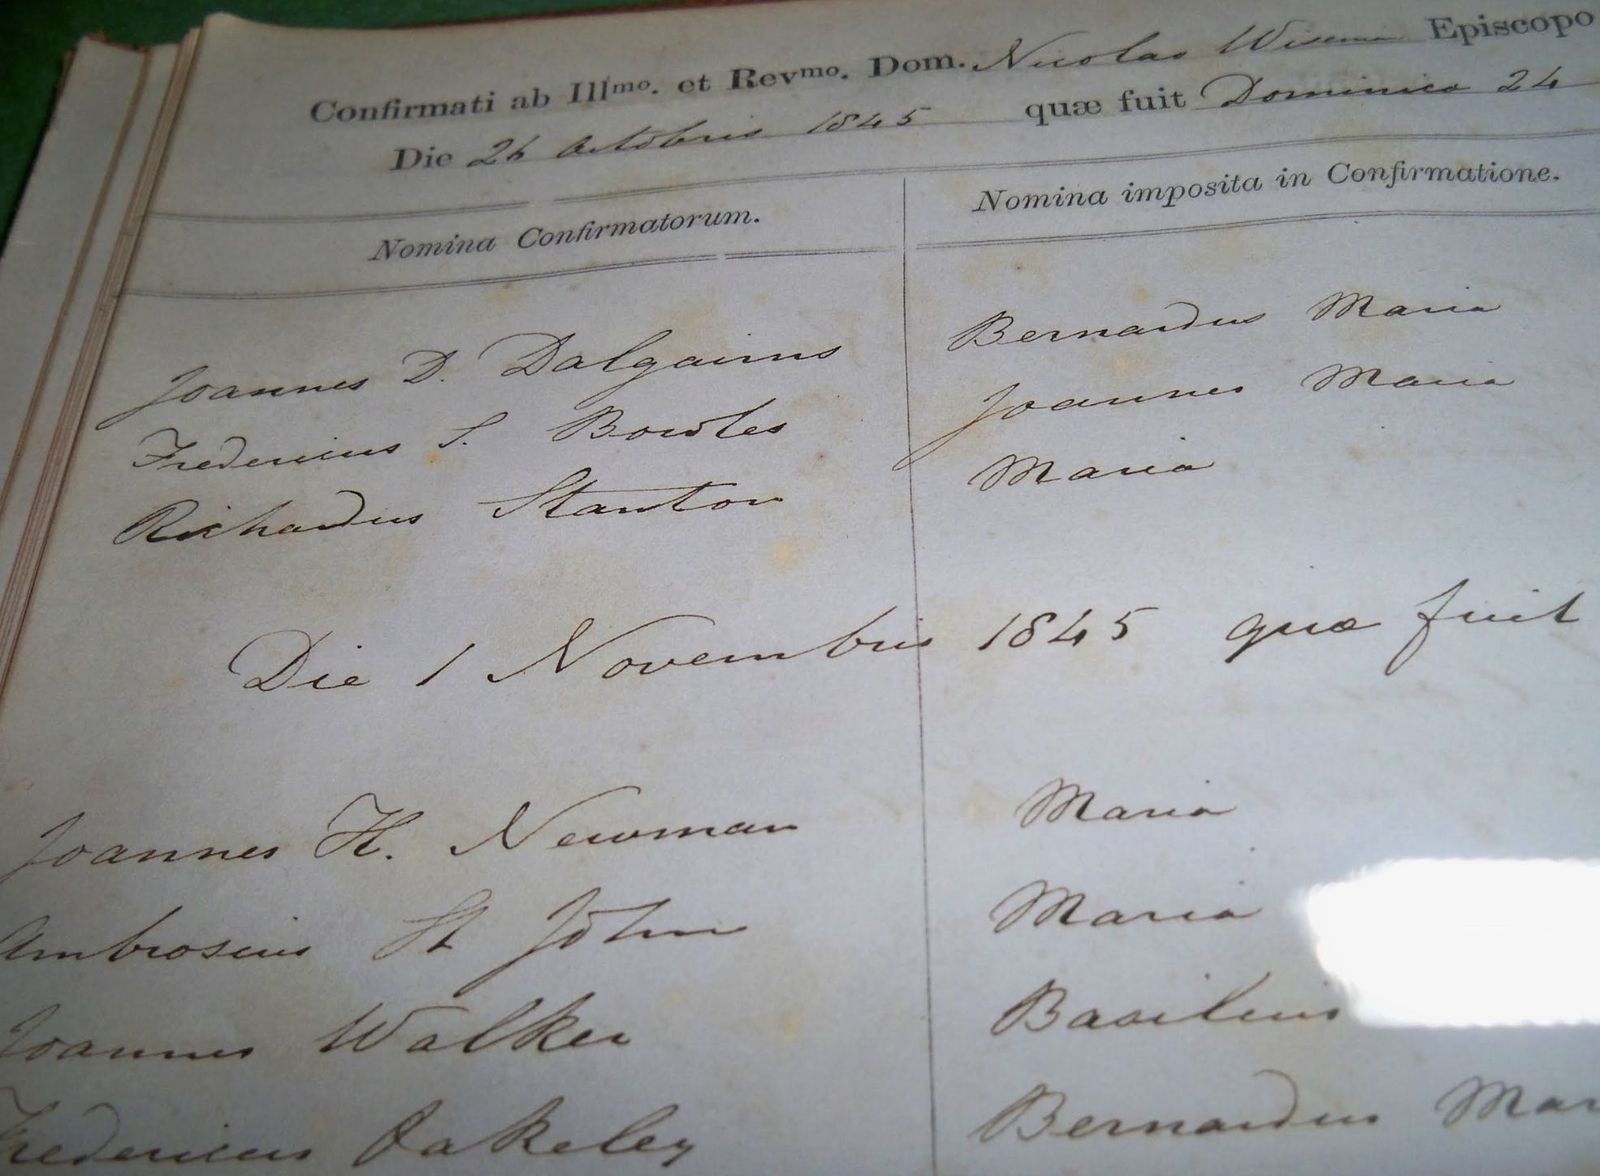 Confirmati ab Illmo. et Revmo. Dom. Nicolao Wiseman Episcopo
Die 26 Octobris 1845 quæ fuit Dominica 24
Nomina Confirmatorum. Nomina imposita in Confirmatione.
Joannes D. Dalgairns Bernardus Maria
Fredericus S. Bowles Joannes Maria
Richardus Stanton Maria
Die 1 Novembris 1845 quæ fuit
Joannes H. Newman Maria
Ambrosius St John Maria
Joannes Walker Basilius
Fredericus Oakeley Bernardus Mar